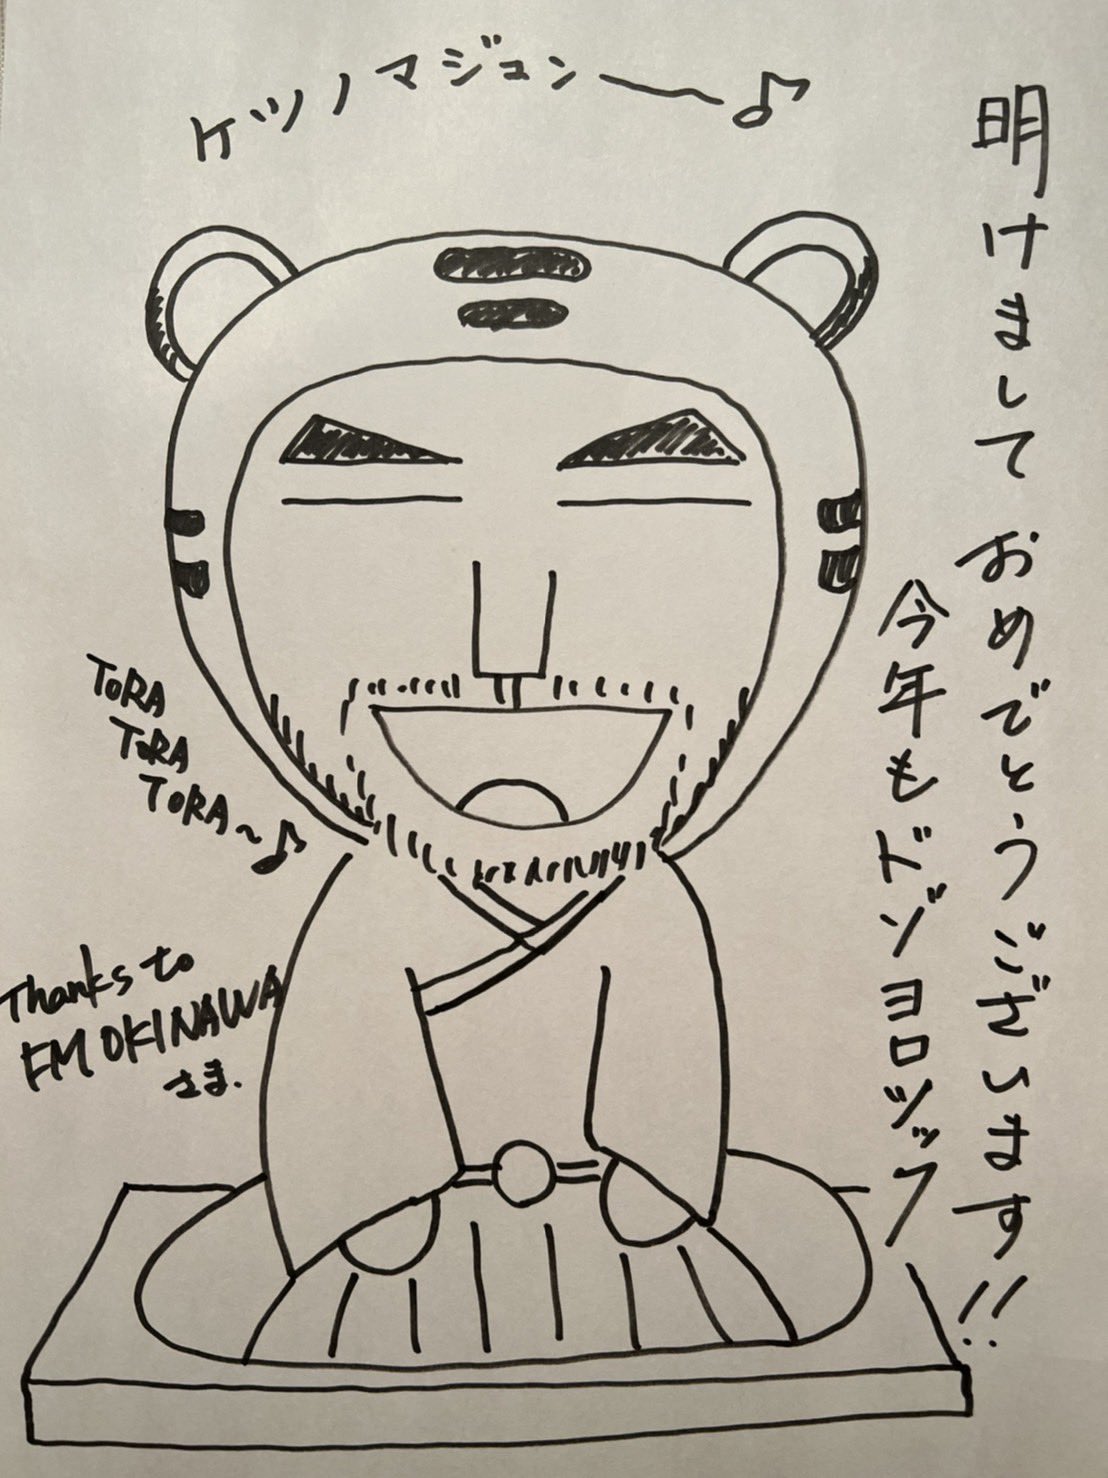 ケツノマジュン〜♪
明けましておめでとうございます!!
今年もドゾヨロツップ
TORA
TORA
TORA〜♪
Thanks to
FM OKINAWA
さま.